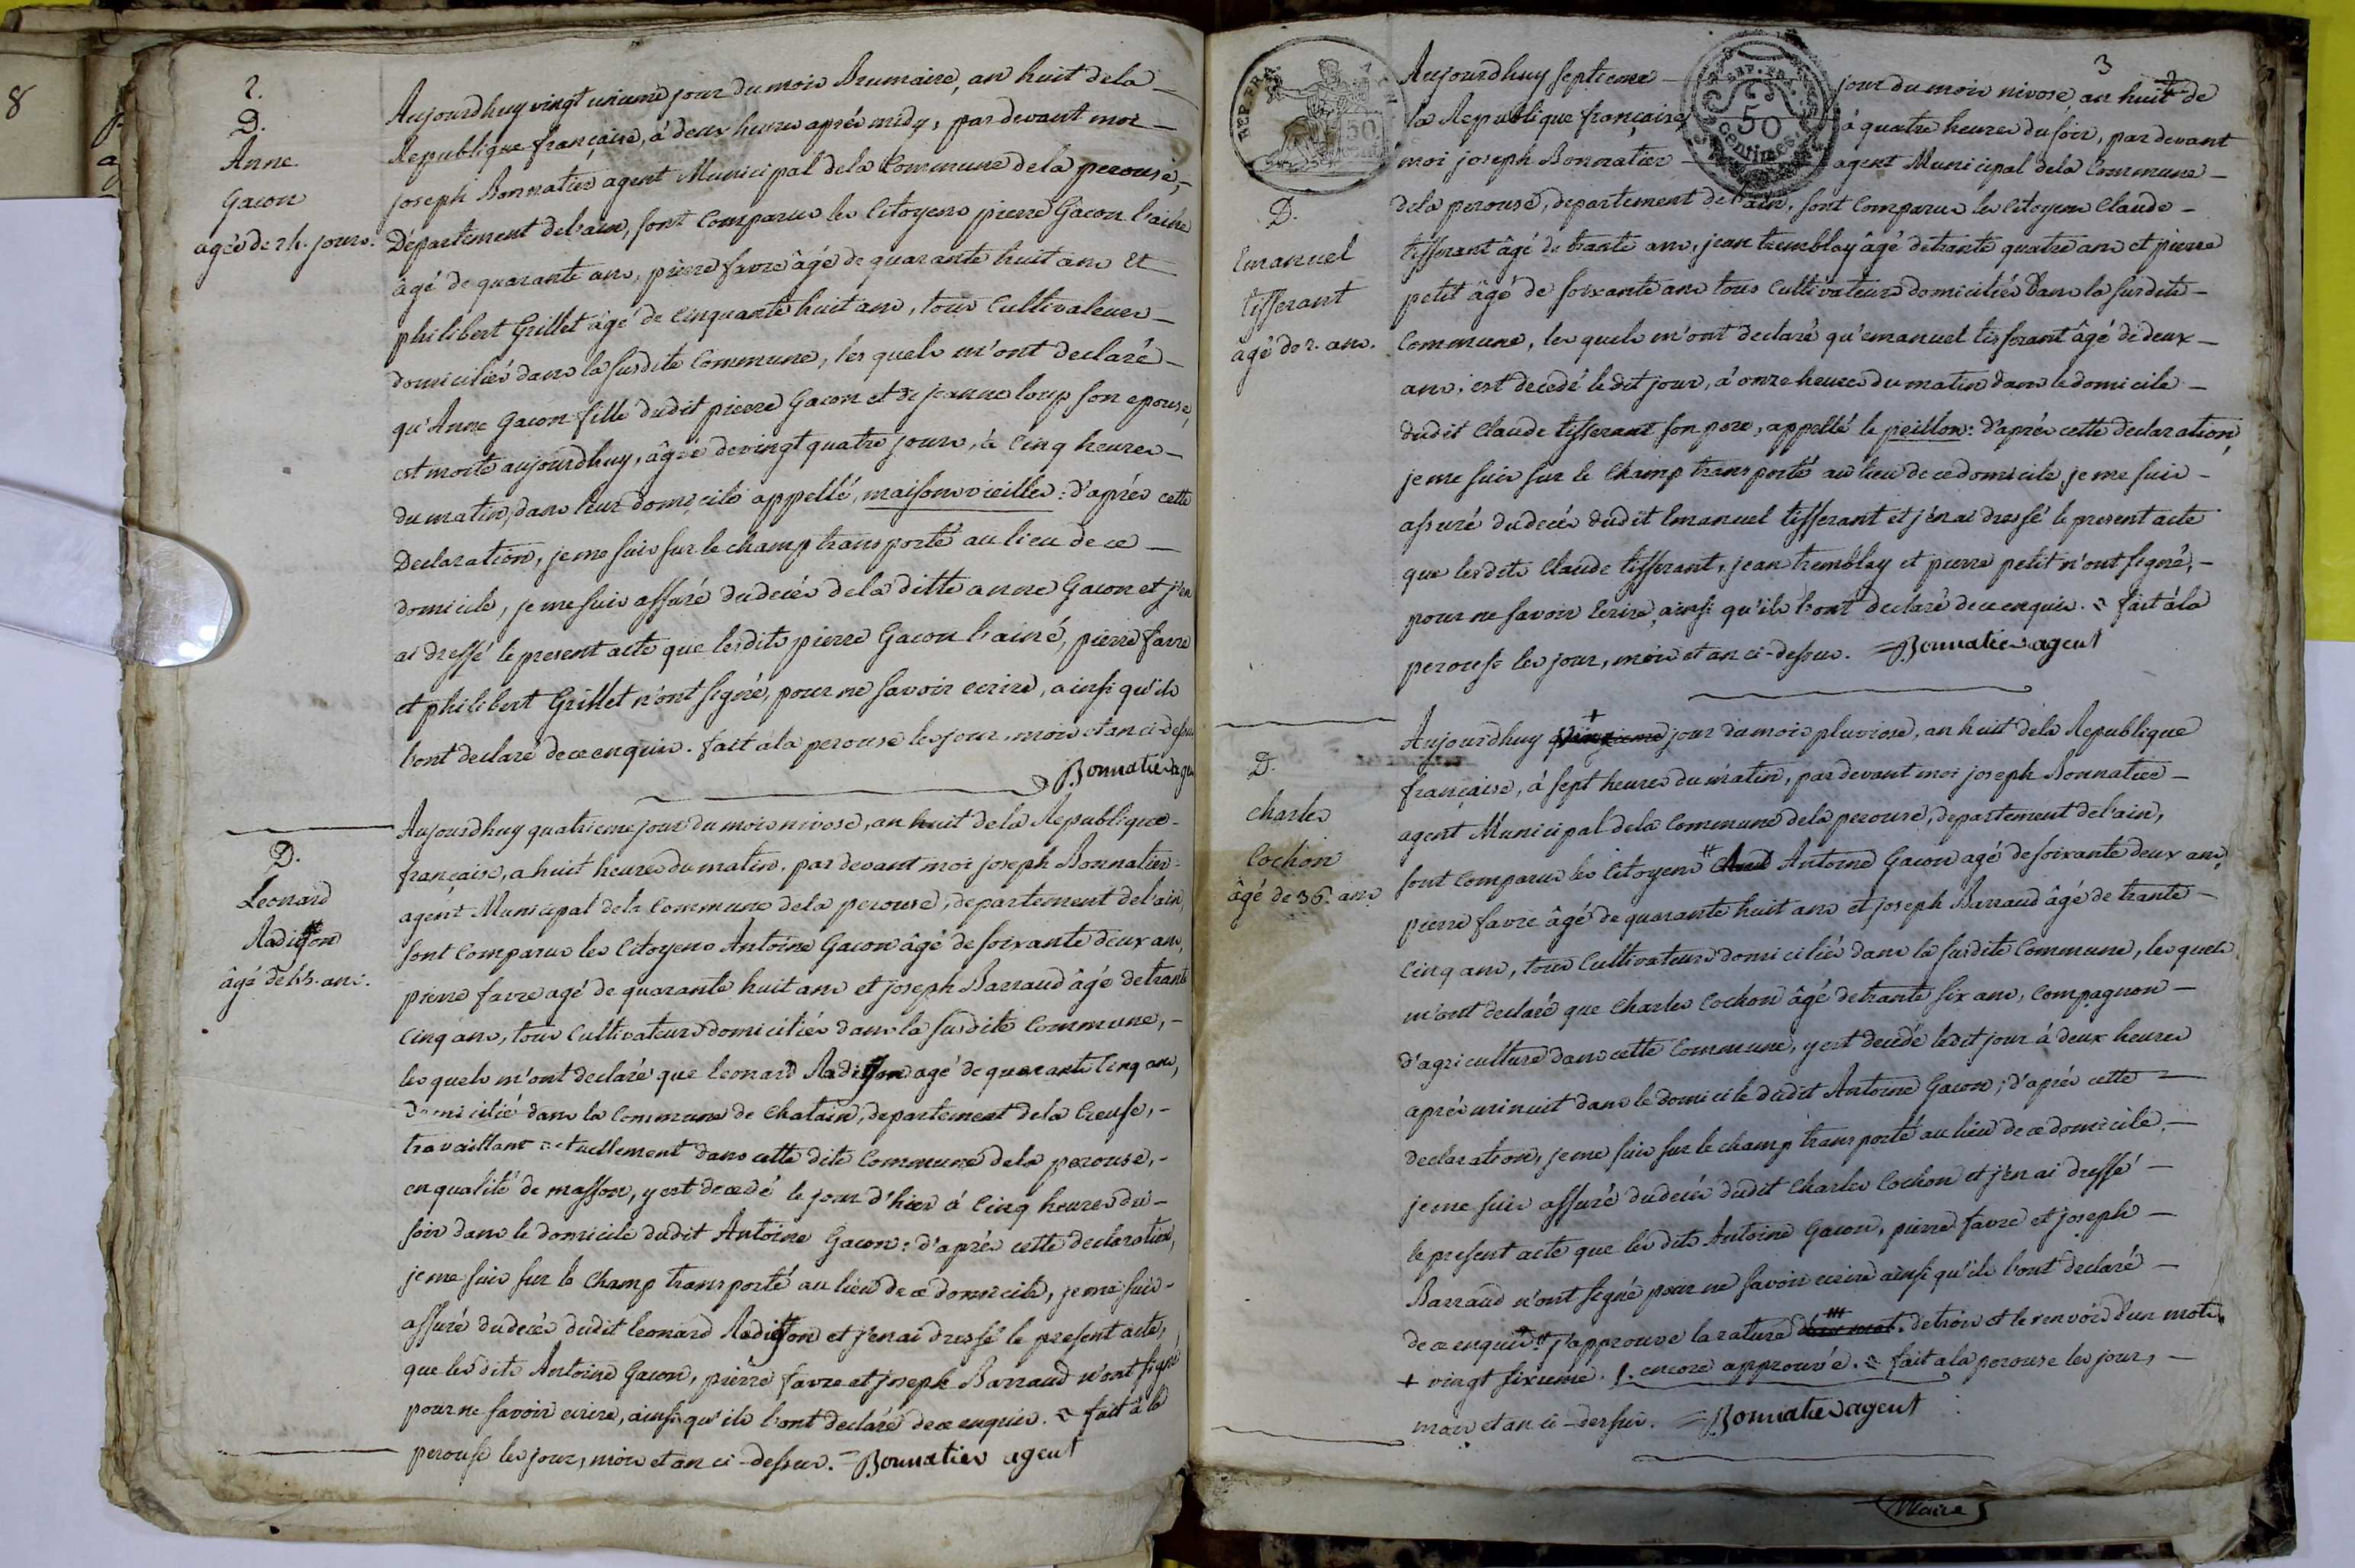 8
2.
D.
Anne
Gacon
agée de 24. jours.
Aujourdhuy vingt unieme jour du mois Brumaire, an huit dela
Republique française, à deux heures après midy, par devant moi
joseph Bonnatier agent Municipal dela Commune dela perouse,
Département de l'ain, sont Comparus les Citoyens pierre Gacon l'ainé
âgé de quarante ans, pierre favre âgé de quarante huit ans et
philibert Grillet âgé de Cinquante huit ans, tous Cultivateurs
domiciliés dans la susdite Commune, les quels m'ont declaré
qu'Anne Gacon fille dudit pierre Gacon et de jeanne loup son epouse,
est morte aujourdhuy, âgée de vingt quatre jours, à Cinq heures
du matin, dans leur domicile appellé, maisons vieilles : d'après cette
Declaration, je me suis sur le champ transporté au lieu de ce
domicile, je me suis assuré du decés dela ditte anne Gacon et j'en
ai dressé le present acte que lesdits pierre Gacon l'ainé, pierre favre
et philibert Grillet n'ont signé, pour ne savoir ecrire, ainsi qu'ils
l'ont declaré de ce enquis. fait à la perouse les jour, mois et an ci-dessus
Bonnatier agent
D.
Leonard
âgé de 45. ans.
Aujourdhuy quatrieme jour du mois nivose, an huit dela Republique
française, a huit heures du matin, par devant moi joseph Bonnatier
agent Municipal dela Commune dela perouse, departement de l'ain,
sont Comparus les Citoyens Antoine Gacon âgé de soixante deux ans,
pierre favre agé de quarante huit ans et joseph Barraud âgé de trante
Cinq ans, tous Cultivateurs domiciliés dans la susdite Commune,
les quels m'ont declaré que leonard agé de quarante Cinq ans,
domicilié dans la Commune de Chatain, departement dela Creuse,
travaillant actuellement dans cette dite Commune dela perouse,
en qualité de masson, y est decedé le jour d'hier à Cinq heures du
soir dans le domicile dudit Antoine Gacon : d'après cette declaration,
je me suis sur le Champ transporté au lieu de ce domicile, je me suis
assuré du decés dudit leonard et j'en ai dressé le present acte,
que les dits Antoine Gacon, pierre favre et joseph Barraud n'ont signé
pour ne savoir ecrire, ainsi qu'ils l'ont declaré de ce enquis. fait à la
perouse les jour, mois et an ci-dessus. = Bonnatier agent
3
REP. FRA.
50
REP. FRA.
50
Centimes.
D.
Emanuel
tisserant
âgé de 2. ans.
Aujourdhuy septieme jour du mois nivose, an huit de
la Republique française, à quatre heures du soir, par devant
moi joseph Bonnatier agent Municipal dela Commune
dela perouse, departement de l'ain, sont Comparus les Citoyens Claude
tisserant âgé de trante ans, jean tremblay âgé de trante quatre ans et pierre
petit âgé de soixante ans tous Cultivateurs domiciliés Dans la susdite
Commune, les quels m'ont declaré qu'emanuel tisserant âgé de deux
ans, est decedé le dit jour, à onze heures du matin dans le domicile
dudit Claude tisserant son pere, appellé le peillon : d'après cette declaration,
je me suis sur le Champ transporté au lieu de ce domicile, je me suis
assuré du decés dudit Emanuel tisserant et j'en ai dressé le present acte
que lesdits Claude tisserant, jean tremblay et pierre petit n'ont signé,
pour ne savoir Ecrire, ainsi qu'ils l'ont declaré de ce enquis. fait à la
perouse les jour, mois et an ci-dessus. = Bonnatier agent
D.
Charles
Cochon
âgé de 36. ans
Aujourdhuy + jour du mois pluviose, an huit dela Republique
française, à sept heures du matin, par devant moi joseph Bonnatier
agent Municipal dela Commune dela perouse, departement de l'ain,
sont Comparus les Citoyens Antoine Gacon agé de soixante deux ans,
pierre favre âgé de quarante huit ans et joseph Barraud âgé de trante
Cinq ans, tous Cultivateurs domiciliés dans la susdite Commune, les quels
m'ont declaré que Charles Cochon âgé de trante six ans, Compagnon
d'agriculture dans cette Commune, y est decédé ledit jour à deux heures
après minuit dans le domicile dudit Antoine Gacon ; d'après cette
declaration, je me suis sur le champ transporté au lieu de ce domicile,
je me suis assuré du decés dudit Charles Cochon et j'en ai dressé
le present acte que les dits Antoine Gacon, pierre favre et joseph
Barraud n'ont signé pour ne savoir ecrire ainsi qu'ils l'ont declaré
de ce enquis. j'approuve la rature de trois et le renvoi d'un mot.
+ vingt sixieme. encore approuvée. fait a la perouse les jour,
mois et an ci-dessus. = Bonnatier agent
Maire